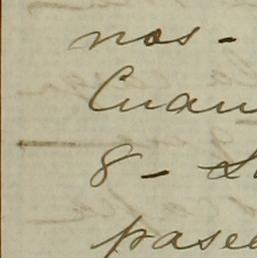 nos-
Cuan
8-
pasee